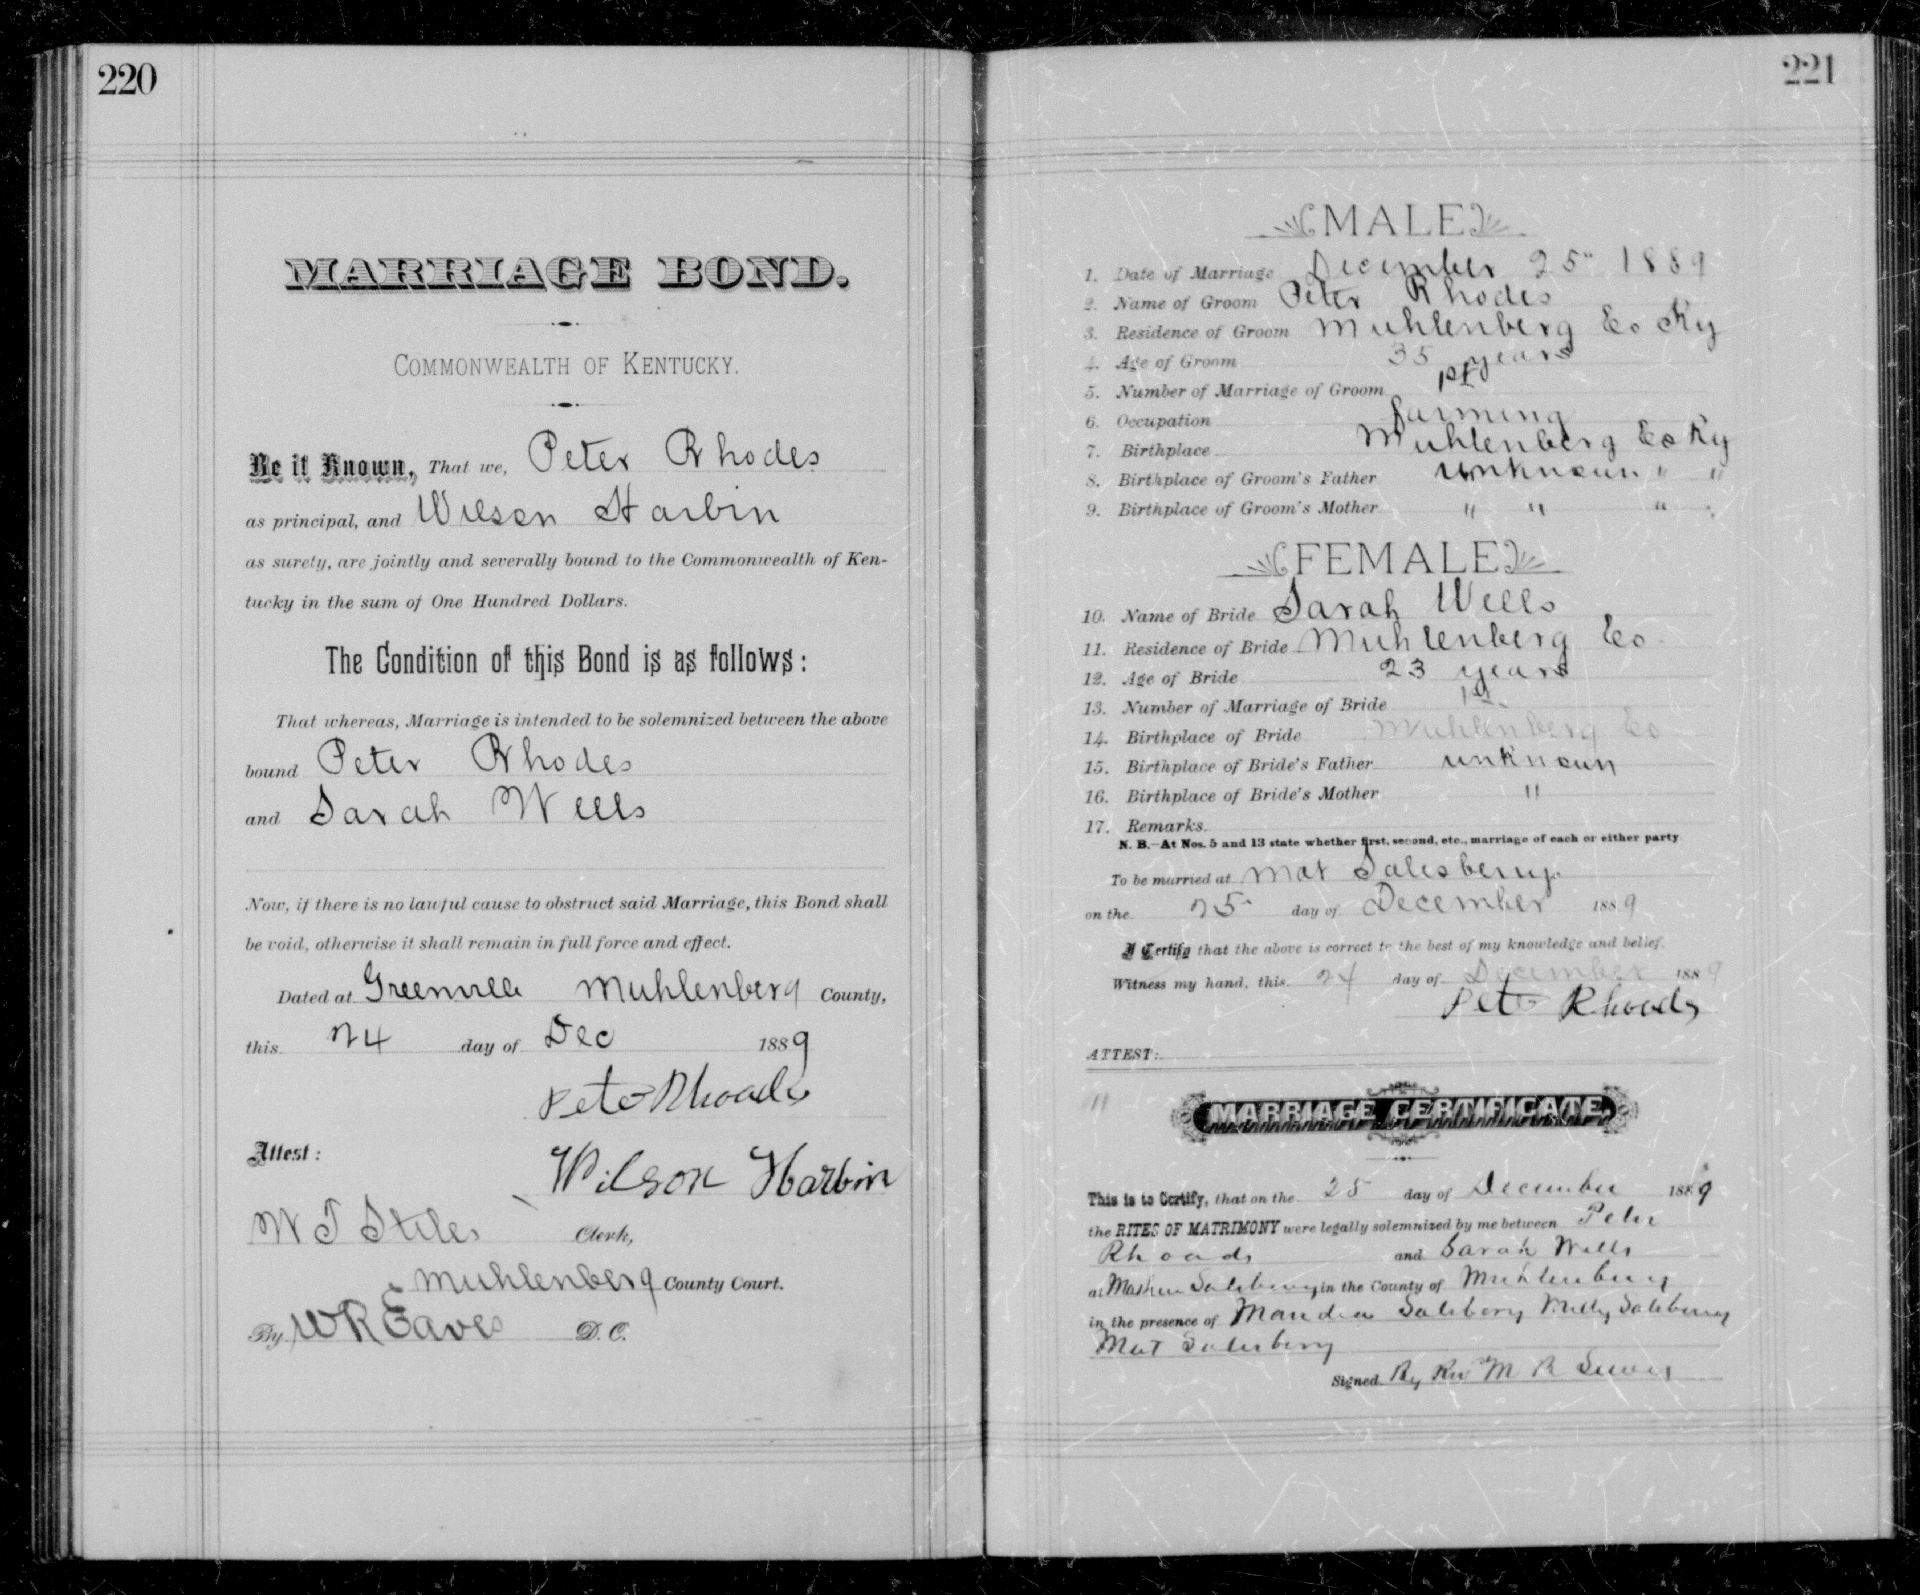 220
MARRIAGE BOND.
COMMONWEALTH OF KENTUCKY.
Be it Known, That we, Peter Rhodes
as principal, and Wilson Harbin
as surety, are jointly and severally bound to the Commonwealth of Ken-
tucky in the sum of One Hundred Dollars.
The Condition of this Bond is as follows:
That whereas, Marriage is intended to be solemnized between the above
bound Peter Rhodes
and Sarah Wells
Now, if there is no lawful cause to obstruct said Marriage, this Bond shall
be void, otherwise it shall remain in full force and effect.
Dated at Greenville Muhlenberg County,
this 24 day of Dec 1889
Peter Rhoads
Attest:
Wilson Harbin
W T Stiles Clerk,
Muhlenberg County Court.
By W R Eaves D. C.
221
MALE
1. Date of Marriage December 25" 1889
2. Name of Groom Peter Rhodes
3. Residence of Groom Muhlenberg Co Ky
4. Age of Groom 35 years
5. Number of Marriage of Groom 1st
6. Occupation farming
7. Birthplace Muhlenberg Co Ky
8. Birthplace of Groom's Father unknown " "
9. Birthplace of Groom's Mother " " " "
FEMALE
10. Name of Bride Sarah Wells
11. Residence of Bride Muhlenberg Co
12. Age of Bride 23 years
13. Number of Marriage of Bride 1st
14. Birthplace of Bride Muhlenberg Co
15. Birthplace of Bride's Father unknown
16. Birthplace of Bride's Mother "
17. Remarks
N. B.—At Nos. 5 and 13 state whether first, second, etc., marriage of each or either party
To be married at Mat Salesberry
on the 25 day of December 1889
I Certify that the above is correct to the best of my knowledge and belief.
Witness my hand, this 24 day of December 1889
Peter Rhoads
ATTEST:
MARRIAGE CERTIFICATE.
This is to Certify, that on the 25 day of December 1889
the RITES OF MATRIMONY were legally solemnized by me between Peter
Rhoads and Sarah Wells
at Salsberry in the County of Muhlenberg
in the presence of Salsbery Milly Salsberry
Mat Salesberry
Signed By Rev M R